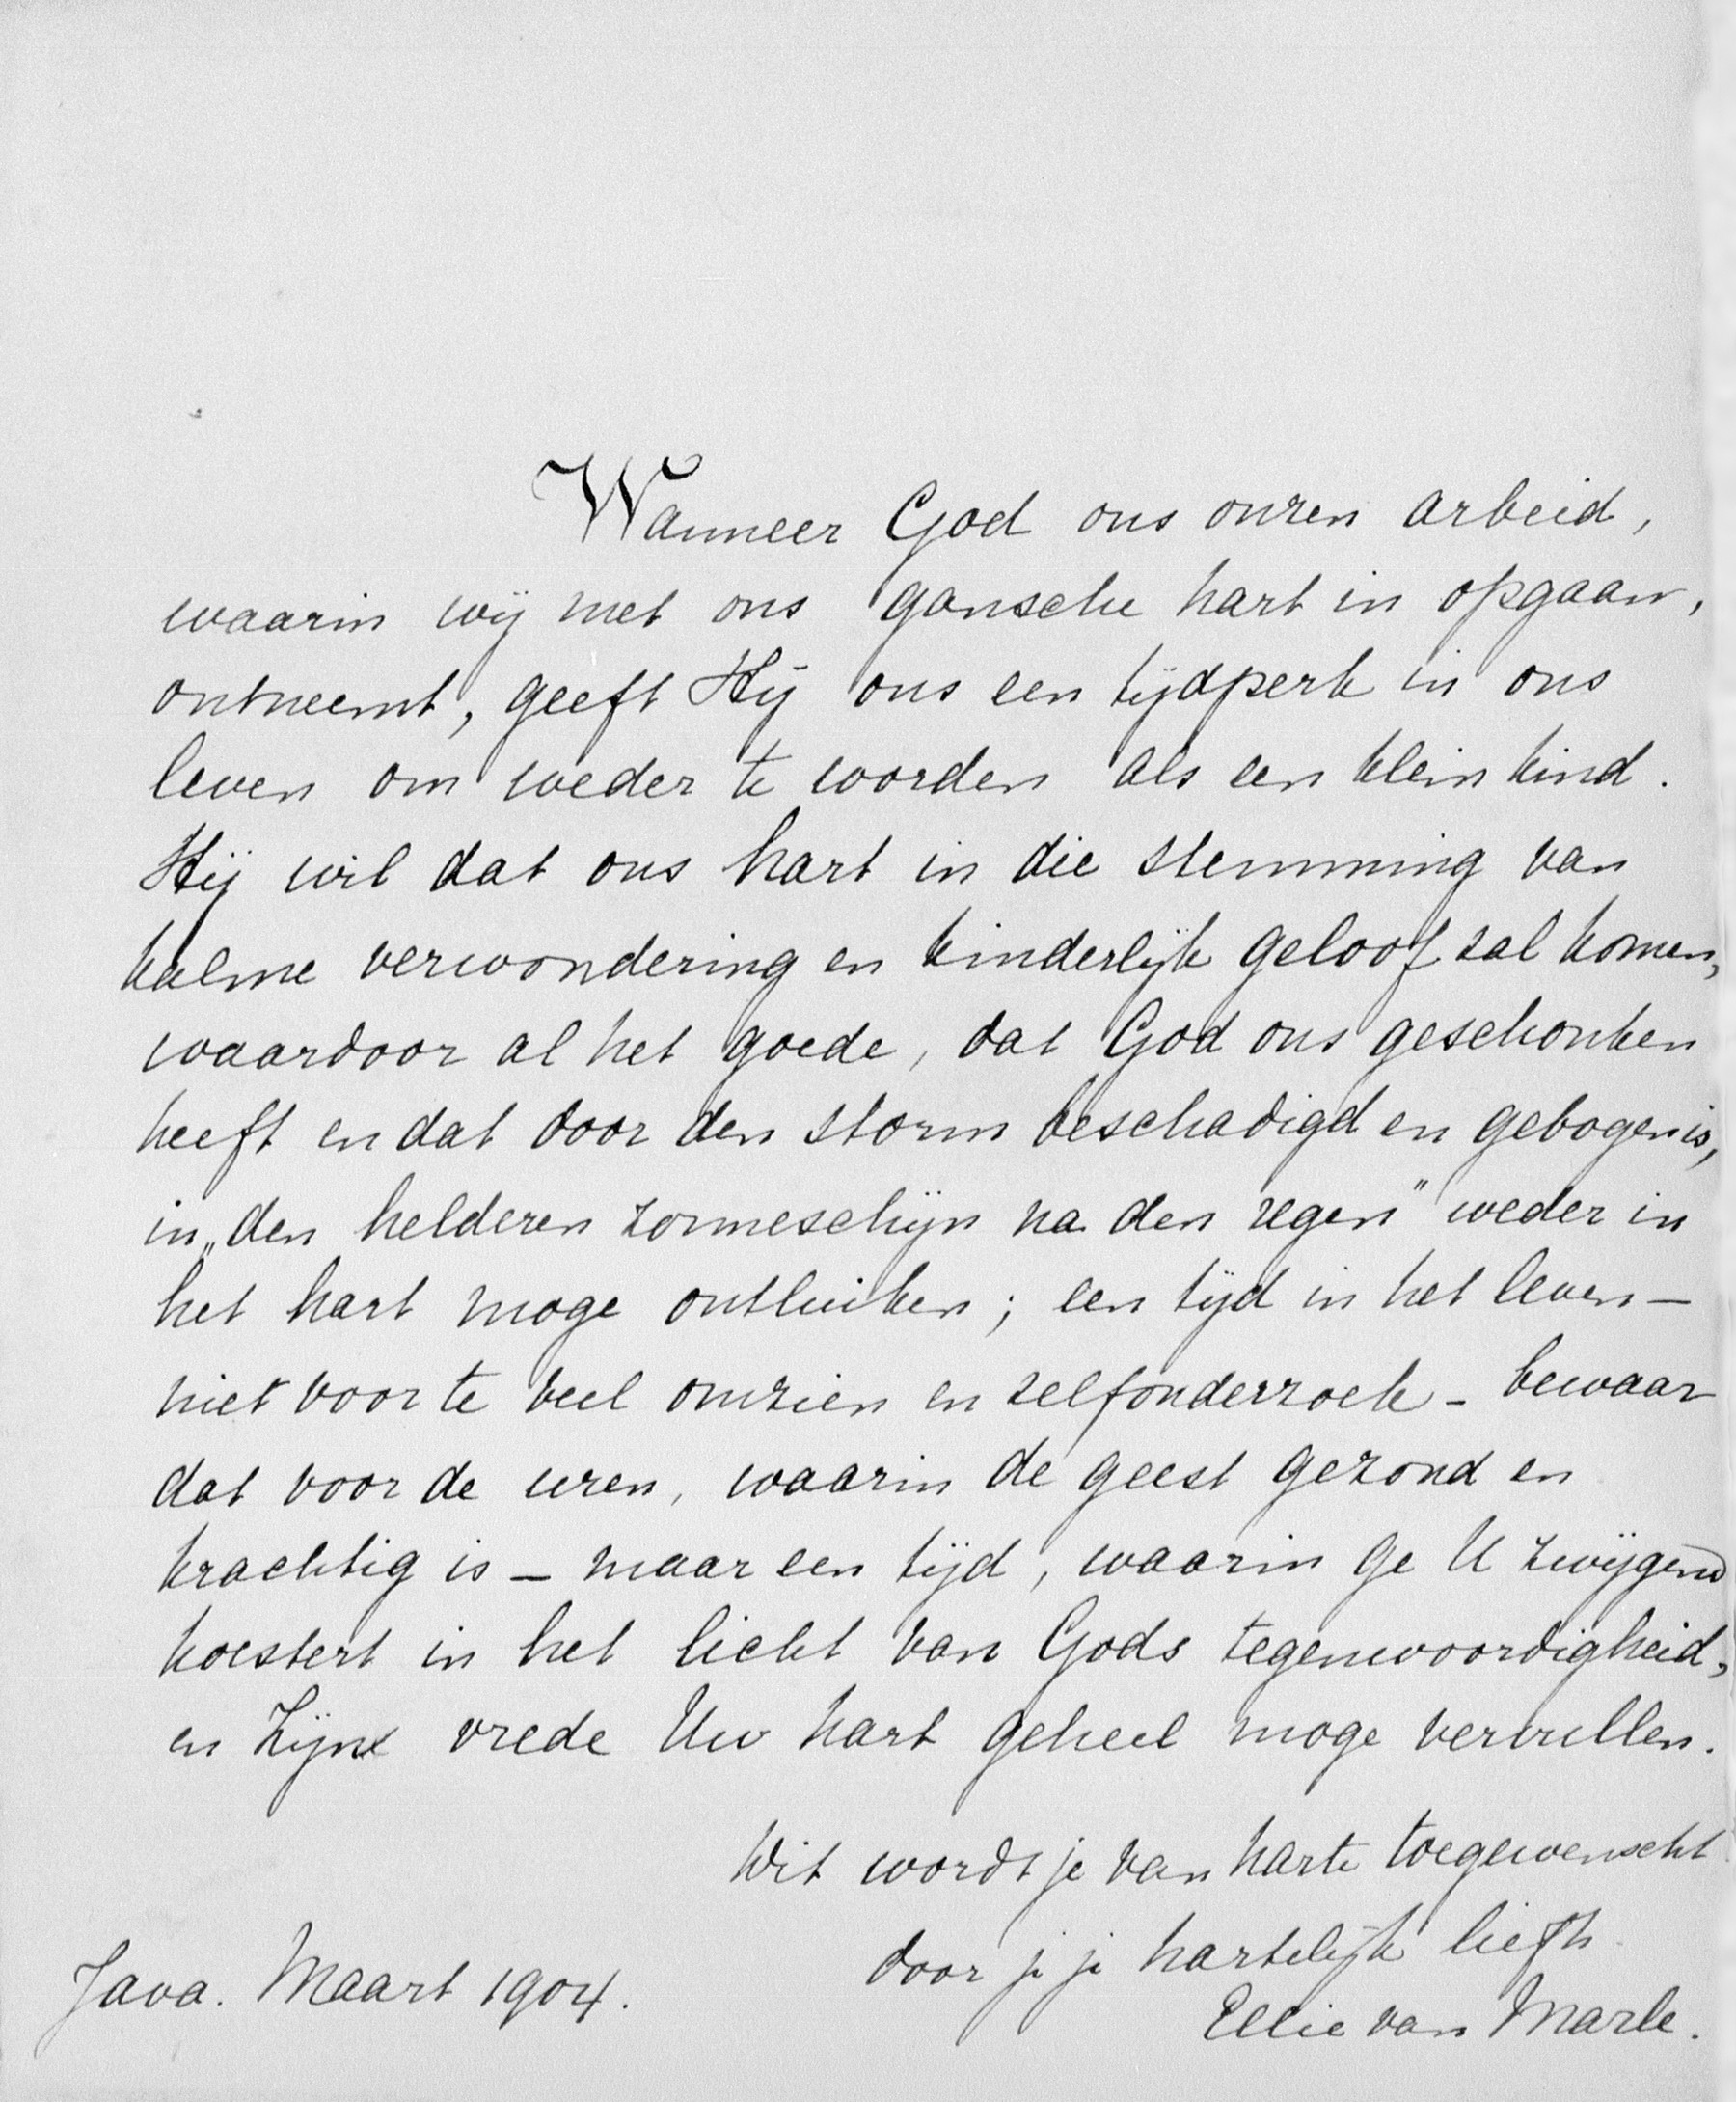 Wanneer God ons onzen arbeid,
waarin wij met ons gansche hart in opgaan,
ontneemt, geeft Hij ons een tijdperk in ons
leven om weder te worden als een klein kind.
Hij wil dat ons hart in die stemming van
kalme verwondering en kinderlijk geloof zal komen,
waardoor al het goede, dat God ons geschonken
heeft en dat door den storm beschadigd en gebogen is,
in „den helderen zonneschijn na den regen" weder in
het hart moge ontluiken; een tijd in het leven —
niet voor te veel omzien en zelfonderzoek - bewaar
dat voor de uren, waarin de geest gezond en
krachtig is — maar een tijd, waarin ge U zwijgend
koestert in het licht van Gods tegenwoordigheid,
en Zijne vrede Uw hart geheel moge vervullen.
Dit wordt je van harte toegewenscht
door je je hartelijk liefh.
Java. Maart 1904.
Ellie van Marle.